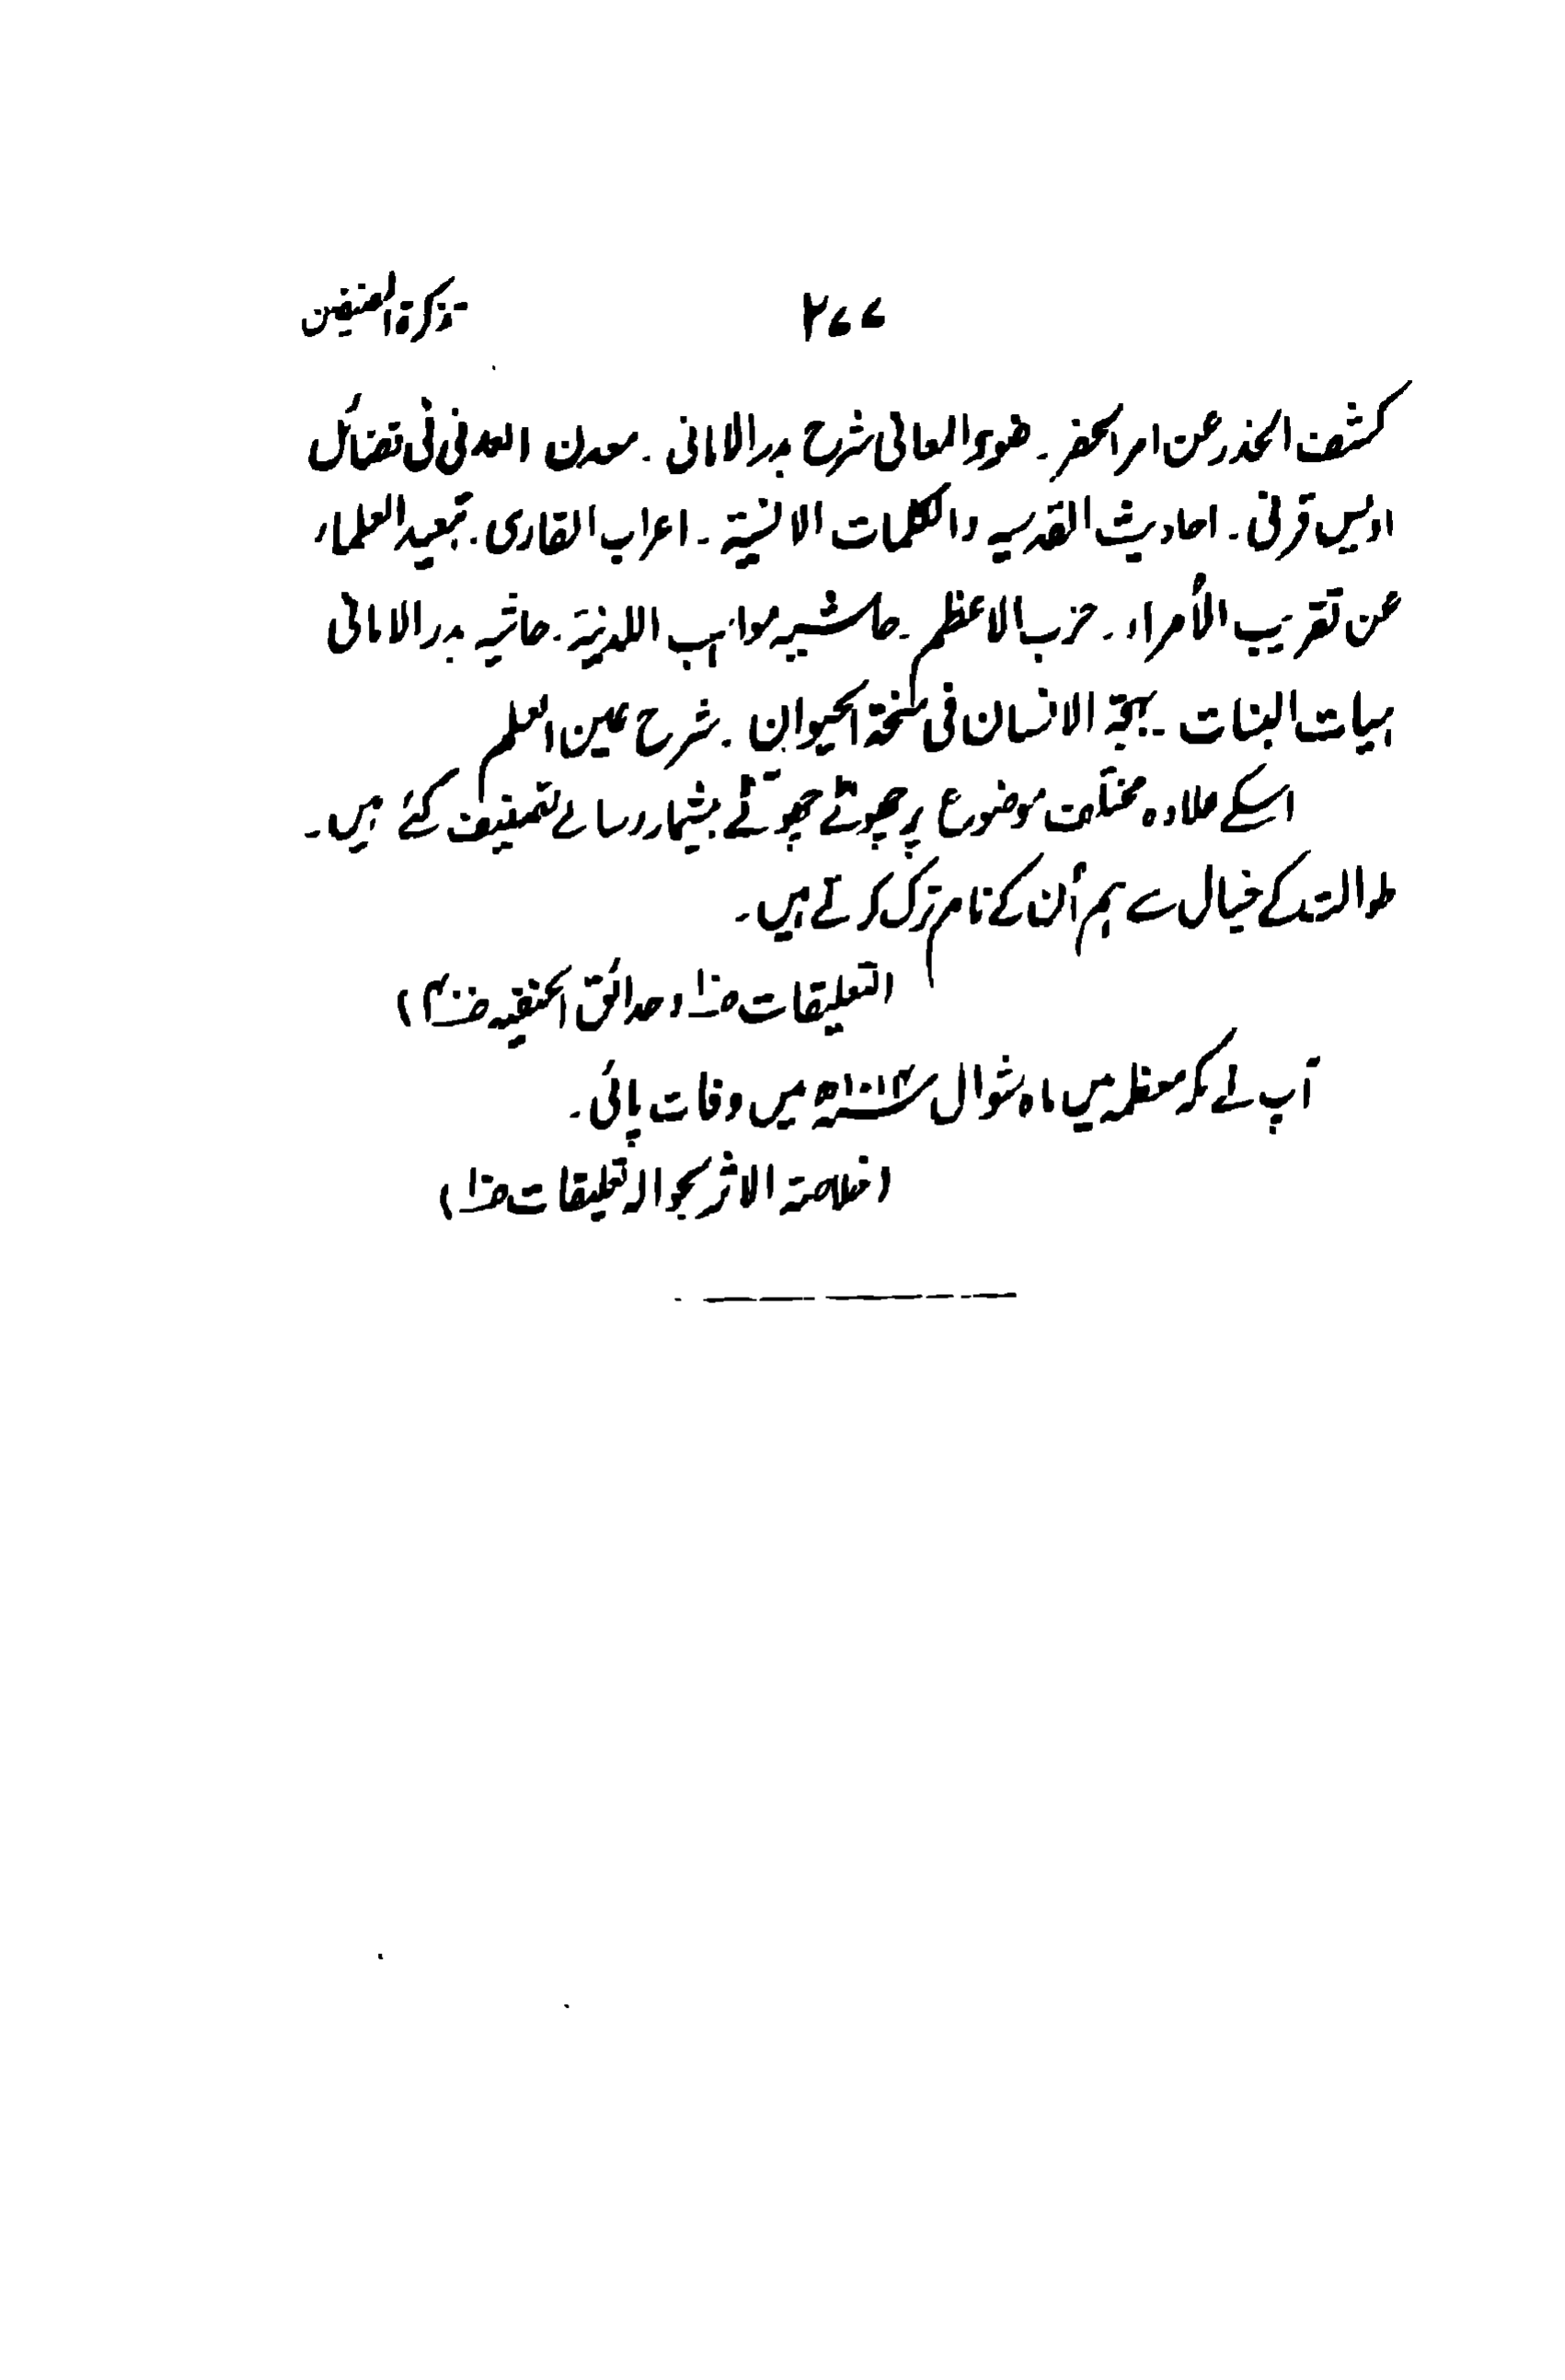 تذکرۃ المصنفین ۲۷۷
کشف الخدر عن امر الخضر۔ ضوء المعالی شرح بدر الامانی۔ معدن العدنی فی فضائل
اویس قرنی۔ احادیث القدسیہ والکلمات الانسیۃ۔ اعراب القاری۔ تبعید العلماء
عن تقریب الأمراء۔ حزب الاعظم۔ حاشیہ مواہب اللدنیۃ۔ حاشیہ بدر الامانی
بہجۃ الانسان فی مہجۃ الحیوان۔ شرح عین العلم
اسکے علاوہ مختلف موضوع پر چھوٹے چھوٹے بیشمار رسالے تصنیف کئے ہیں۔
طوالت کے خیال سے ہم اُن کے نام ترک کرتے ہیں۔
التعلیقات و حدائق الحنفیہ
آپ نے مکہ معظمہ میں ماہ شوال ۱۰۱۴ھ میں وفات پائی۔
(خلاصۃ الاثر بحوالہ تعلیقات